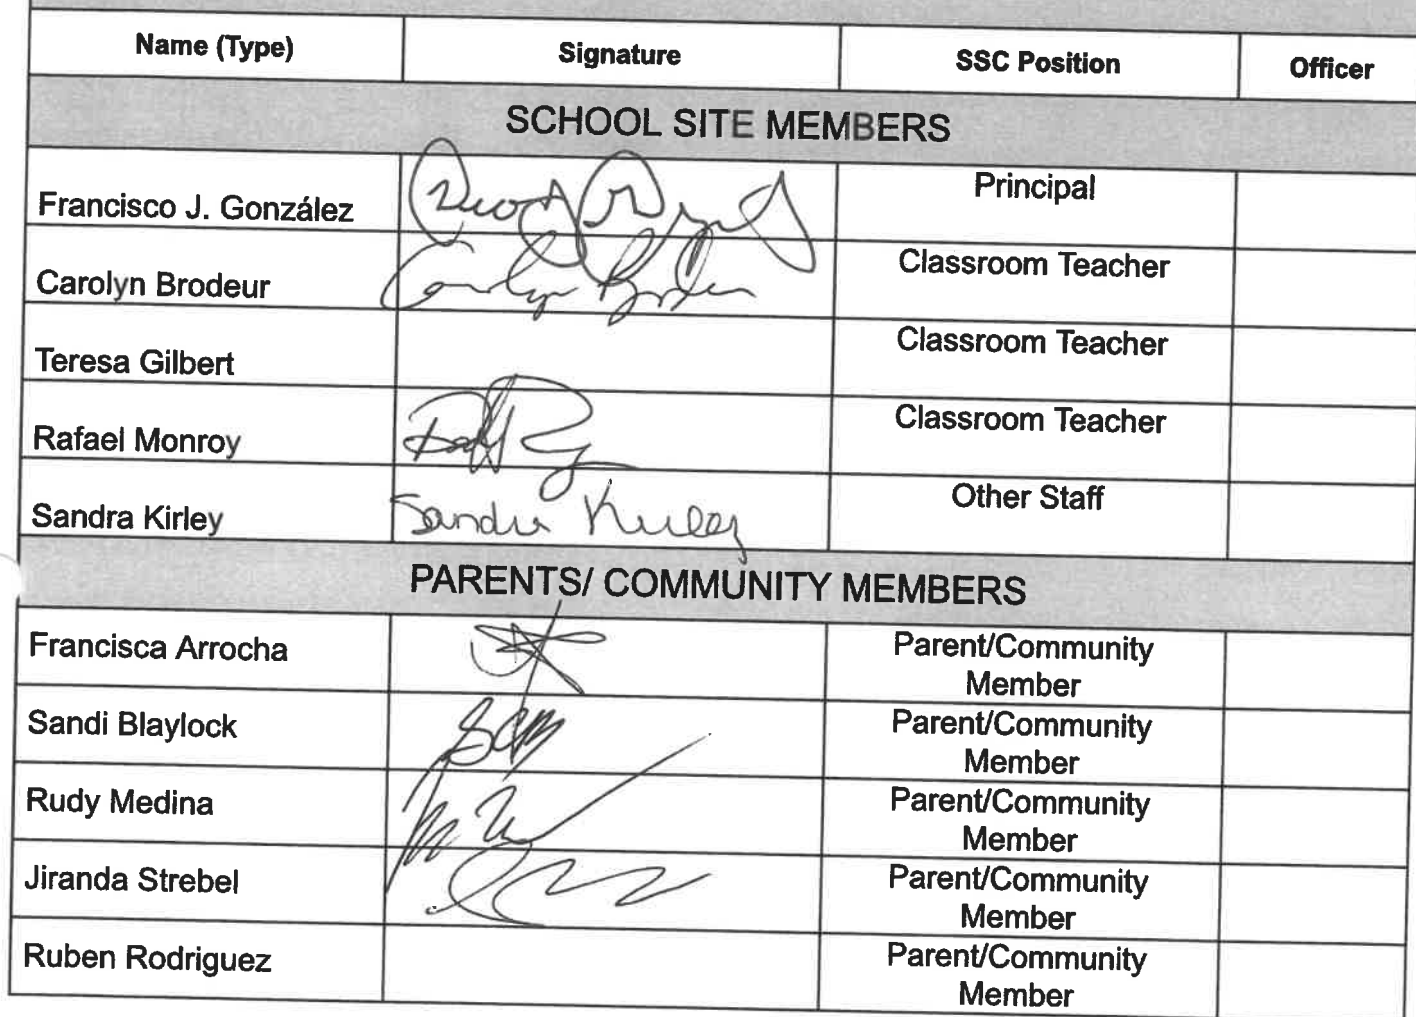 Name (Type) Signature SSC Position Officer
SCHOOL SITE MEMBERS
Francisco J. González Principal
Carolyn Brodeur Carolyn Brodeur Classroom Teacher
Teresa Gilbert Classroom Teacher
Rafael Monroy Classroom Teacher
Sandra Kirley Sandra Kirley Other Staff
PARENTS/ COMMUNITY MEMBERS
Francisca Arrocha Parent/Community
Member
Sandi Blaylock Parent/Community
Member
Rudy Medina Parent/Community
Member
Jiranda Strebel Parent/Community
Member
Ruben Rodriguez Parent/Community
Member